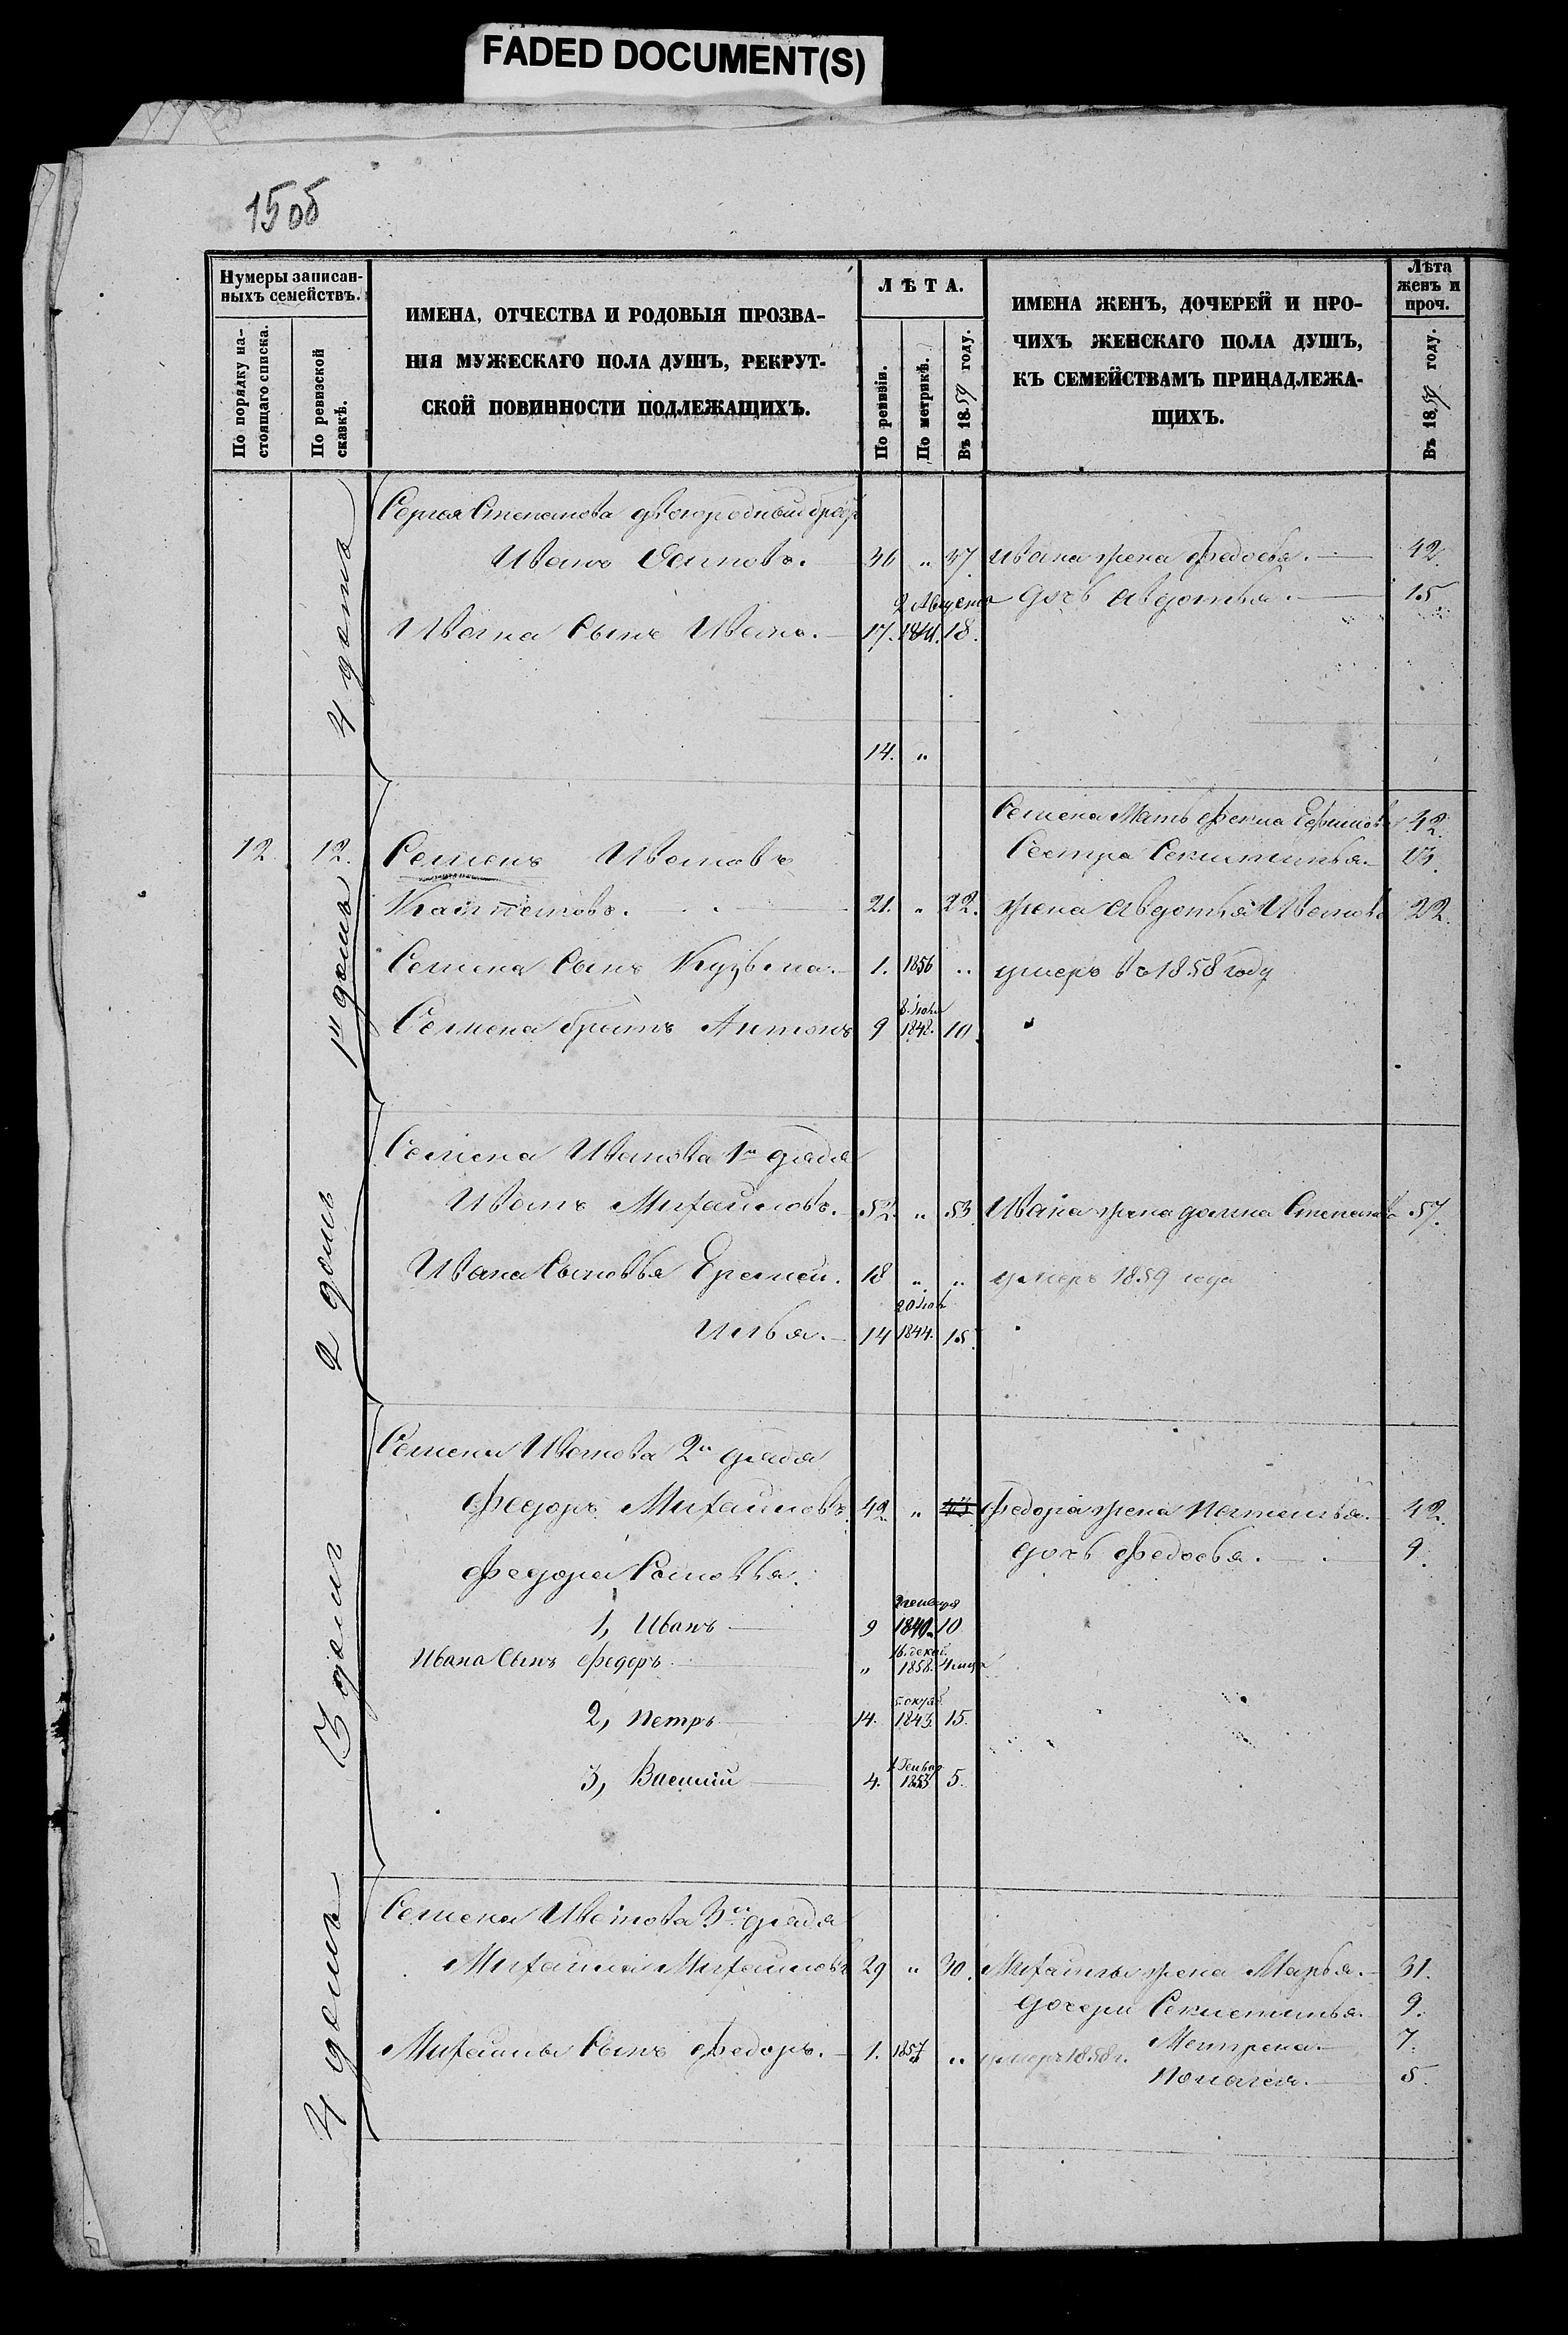 FADED DOCUMENT(S)
150б
Нумеры записан-
ныхъ семействъ.
По порядку на-
стоящаго списка.
По ревизской
сказкѣ.
ИМЕНА, ОТЧЕСТВА И РОДОВЫЯ ПРОЗВА-
НІЯ МУЖЕСКАГО ПОЛА ДУШЪ, РЕКРУТ-
СКОЙ ПОВИННОСТИ ПОДЛЕЖАЩИХЪ.
ЛѢТА.
По ревизіи.
По метрикѣ.
Въ 1859 году.
ИМЕНА ЖЕНЪ, ДОЧЕРЕЙ И ПРО-
ЧИХЪ ЖЕНСКАГО ПОЛА ДУШЪ,
КЪ СЕМЕЙСТВАМЪ ПРИНАДЛЕЖА-
ЩИХЪ.
Лѣта
женъ и
проч.
Въ 1859 году.
4 домъ
Сергея Степанова двоюродный братъ
Иванъ Осиповъ. 36 " 37 Ивана жена Федосья. 42.
2 Августа дочь Авдотья. 15
Ивана Сынъ Иванъ. 17. 1841. 18.
14. "
1й домъ
Семена Мать Фекла Ефимова 42.
12. 12. Семенъ Ивановъ Сестра Секлитинья. 13.
21. " 22. жена Авдотья Иванова 22.
Семена Сынъ Кузьма. 1. 1856 " умеръ въ 1858 году
Семена братъ Антонъ 9 1848. 10.
2 домъ
Семена Иванова 1й дядя
Иванъ Михайловъ. 52. " 53 Ивана жена Степанова 57.
Ивана Сыновья Еремей. 18 " " умеръ 1859 года
Илья. 14 1844. 15.
3 домъ
Семена Иванова 2й дядя
Федоръ Михайловъ. 42 " 43 Федора жена Пелагья. 42.
дочь Федосья. 9.
Федора Сыновья.
1, Иванъ 9 1849 10
Ивана Сынъ Федоръ " 16. декаб. 1858. 4 меся
2, Петръ 14. 5 октяб. 1843 15.
3, Василий 4. 1 Генвар 1853 5.
4 домъ
Семена Иванова 3й дядя
Михайла Михайловъ 29 " 30. Михайлы жена Марья. 31.
дочери Секлетинья. 9.
Михайлы Сынъ Федоръ. 1. 1857 " умеръ 1858 г. Матрена 7.
Пелагея. 5.